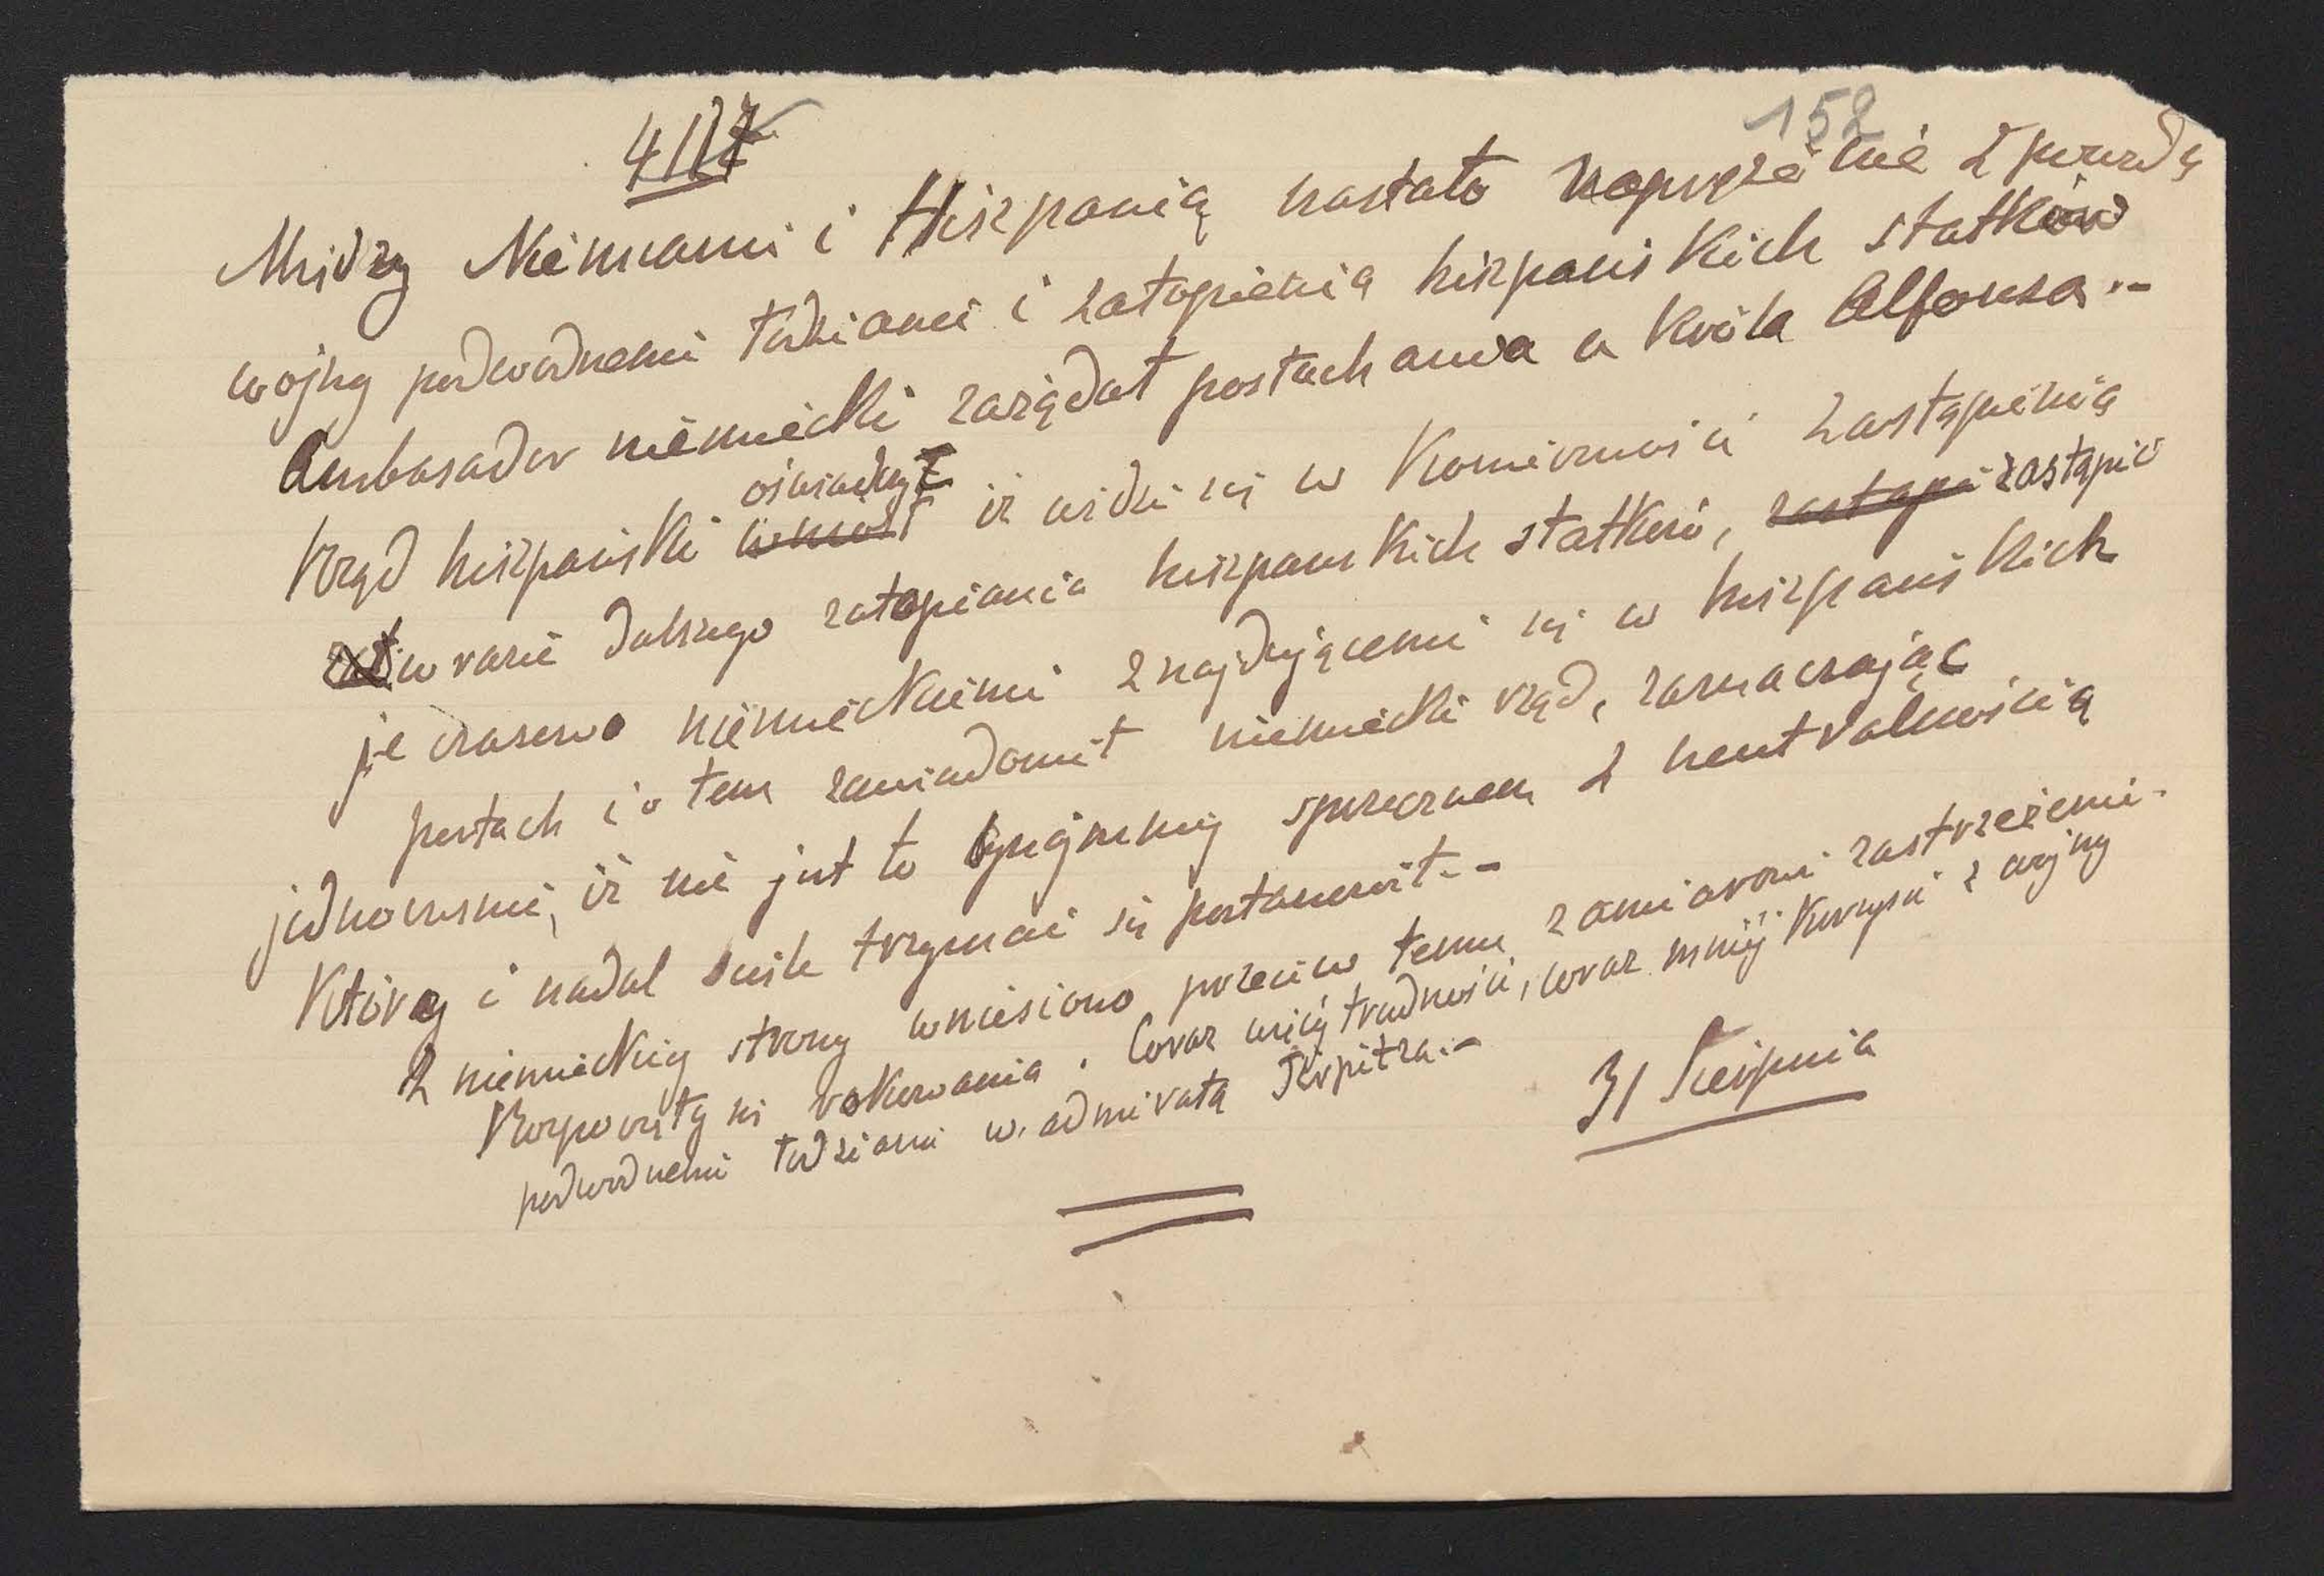 152
4117
Miedzy Niemcami i Hiszpanią nastało naprężenie z powodu
wojny podwodnemi łodziami i zatopienia hiszpańskich statków
Ambasador niemiecki zażądał posłuchania u króla Alfonsa.-
oświadczył
Rząd hiszpański wniósł iż widzi się w konieczności zastąpienia
zat w razie dalszego zatopiania hiszpańskich statków, zastąpi zastąpić
je czasowo niemieckiemi znajdującemi się w hiszpańskich
portach i o tem zawiadomił niemiecki rząd, zaznaczając
jednocześnie, iż nie jest to bynajmniej sprzecznem z neutralnością
której i nadal ściśle trzymać się postanowił.-
Z niemieckiej strony wniesiono przeciw temu zamiarowi zastrzeżenie.
Rozpoczęły się rokowania. Coraz więcej trudności, coraz mniej korzyści z wojny
podwodnemi łodziami w. admirała Tirpitza.-
31 Sierpnia